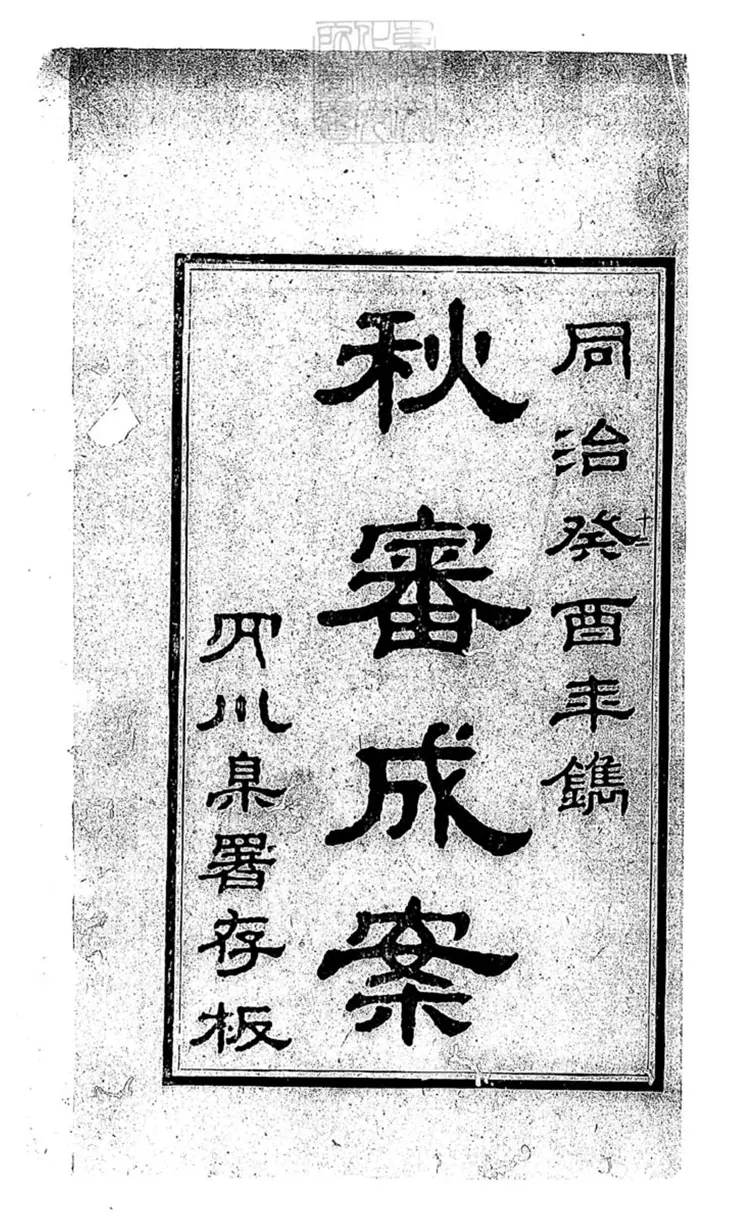 同治癸酉年鐫
十二
秋審成案
四川臬署存板